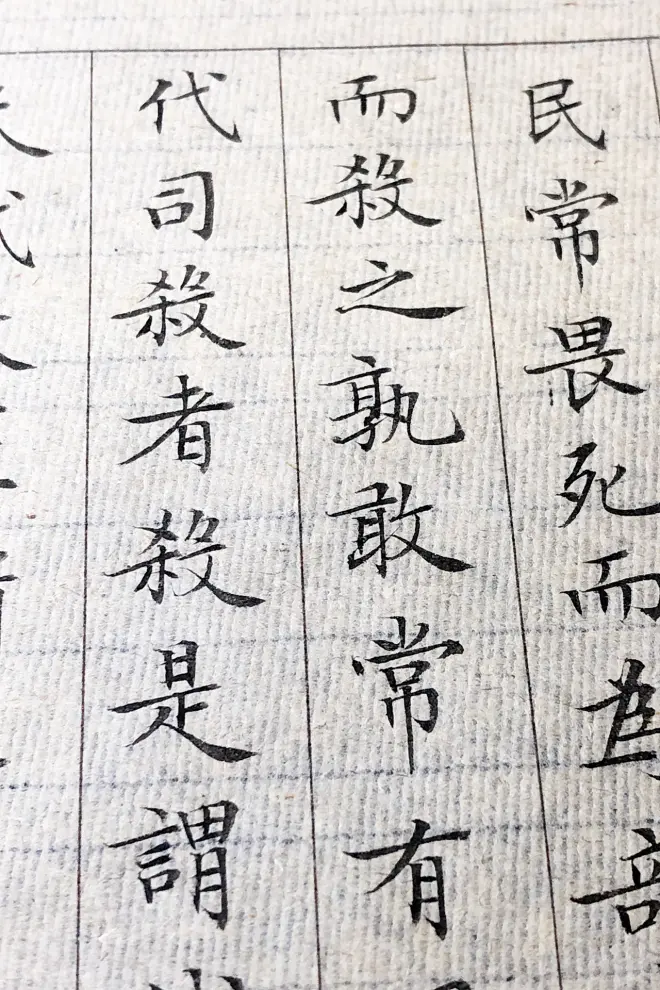 民常畏死而為竒
而殺之孰敢常有
代司殺者殺是謂